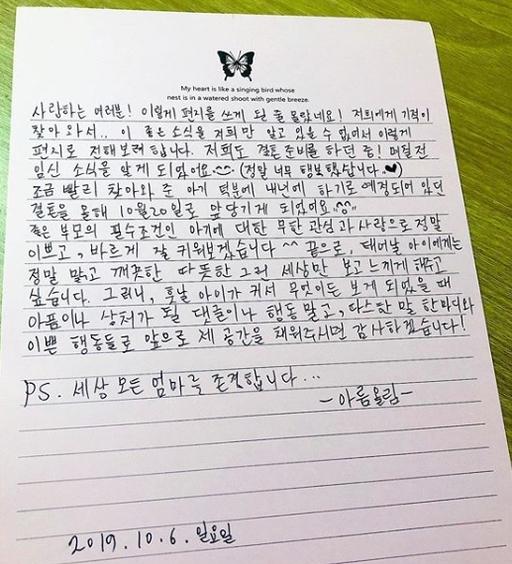 My heart is like a singing bird whose
nest is in a watered shoot with gentle breeze.
사랑하는 여러분! 이렇게 편지를 쓰게 될 줄 몰랐네요! 저희에게 기적이
찾아 와서.. 이 좋은 소식을 저희만 알고 있을 수 없어서 이렇게
편지로 전해보려 합니다. 저희도 결혼준비를 하던 중! 며칠전
임신 소식을 알게 되었어요 (정말 너무 행복했답니다.♥)
조금 빨리 찾아와 준 아기 덕분에 내년에 하기로 예정되어 있던
결혼을 올해 10월20일로 앞당기게 되었어요 ^^
좋은 부모의 필수조건인 아기에 대한 무한 관심과 사랑으로 정말
이쁘고, 바르게 잘 키워보겠습니다 ^^ 끝으로, 태어날 아이에게는
정말 맑고 깨끗한 따듯한 그런 세상만 보고 느끼게 해주고
싶습니다. 그러니, 훗날 아이가 커서 무엇이든 보게 되었을 때
아픔이나 상처가 될 댓글이나 행동 말고, 다스한 말 한마디와
이쁜 행동들로 앞으로 제 공간을 채워주시면 감사하겠습니다!
PS. 세상 모든 엄마를 존경합니다...
-아름올림-
2019.10.6. 일요일